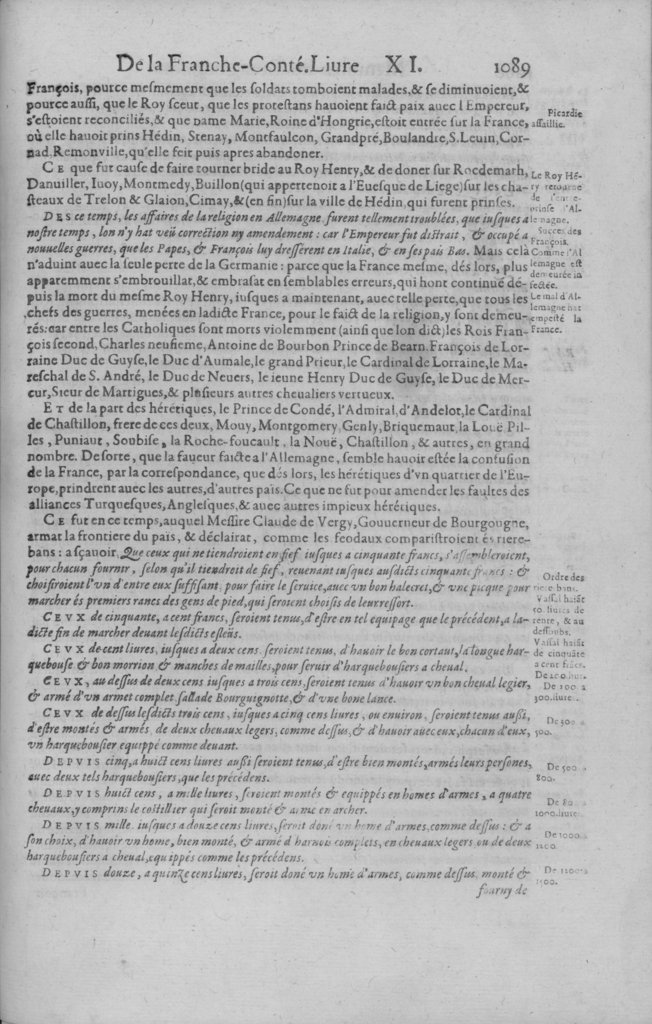 De la Franche-Conté. Liure XI. 1089
François, pource meſmement que les ſoldats tomboient malades, & ſe diminuoient, &
pource auſſi, que le Roy ſceut, que les proteſtans hauoient faict paix auec l'Empereur,
s'eſtoient reconciliés, & que dame Marie, Roine d'Hongrie, eſtoit entrée ſur la France,
où elle hauoit prins Hédin, Stenay, Montfaulcon, Grandpré, Boulandre, S. Leuin, Cor-
nad. Remonville, qu'elle feit puis apres abandoner.
Picardie
aſſaillie.
CE que fut cauſe de faire tourner bride au Roy Henry, & de doner ſur Rocdemarh,
Danuiller, Iuoy, Montmedy, Buillon (qui appertenoit a l'Eueſque de Liege) ſur les cha-
ſteaux de Trelon & Glaion, Cimay, & (en fin) ſur la ville de Hédin, qui furent prinſes.
Le Roy Hé-
ry retourne
DES ce temps, les affaires de la religion en Allemagne furent tellement troublées, que iuſques a
noſtre temps, lon n'y hat veü correction ny amendement : car l'Empereur fut diſtrait, & occupé a
nouuelles guerres, que les Papes, & François luy dreſſèrent en Italie, & en ſes païs Bas. Mais celà
n'aduint auec la ſeule perte de la Germanie : parce que la France meſme, dés lors, plus
apparemment s'embrouillat, & embraſat en ſemblables erreurs, qui hont continué de-
puis la mort du meſme Roy Henry, iuſques a maintenant, auec telle perte, que tous les
chefs des guerres, menées en ladicte France, pour le faict de la religion, y ſont demeu-
rés: car entre les Catholiques ſont morts violemment (ainſi que lon dict) les Rois Fran-
çois ſecond, Charles neufieme, Antoine de Bourbon Prince de Bearn. François de Lor-
raine Duc de Guyſe, le Duc d'Aumale, le grand Prieur, le Cardinal de Lorraine, le Ma-
reſchal de S. André, le Duc de Neuers, le ieune Henry Duc de Guyſe, le Duc de Mer-
cur, Sieur de Martigues, & pluſieurs autres cheualiers vertueux.
Succes des
François.
Comme l'Al
lemagne eſt
demeurée in
fectée.
Le mal d'Al-
lemagne hat
empeſté la
France.
ET de la part des hérétiques, le Prince de Condé, l'Admiral, d'Andelot, le Cardinal
de Chaſtillon, frere de ces deux, Mouy, Montgomery, Genly, Briquemaut, la Louë Pil-
les, Puniaut, Soubiſe, la Roche-foucault, la Nouë, Chaſtillon, & autres, en grand
nombre. De ſorte, que la faueur faicte a l'Allemagne, ſemble hauoir eſtée la confuſion
de la France, par la correſpondance, que dés lors, les hérétiques d'vn quartier de l'Eu-
rope, prindrent auec les autres, d'autres païs. Ce que ne fut pour amender les faultes des
alliances Turqueſques, Angleſques, & auec autres impieux hérétiques.
CE fut en ce temps, auquel Meſſire Claude de Vergy, Gouuerneur de Bourgougne,
armat la frontiere du païs, & déclairat, comme les feodaux compariſtroient és riere-
bans : a ſçauoir. Que ceux qui ne tiendroient en fief iuſques a cinquante francs, s'aſſembleroient,
pour chacun fournir, ſelon qu'il tiendroit de fief, reuenant iuſques auſdicts cinquante francs : &
choiſiroient l'vn d'entre eux ſuffiſant pour faire le ſeruice, auec vn bon halecret, & vne picque pour
marcher és premiers rancs des gens de pied, qui ſeroient choiſis de leur reſſort.
Ordre des
riere bans.
CEVX de cinquante, a cent francs, ſeroient tenus, d'eſtre en tel equipage que le précédent, a la-
dicte fin de marcher deuant leſdicts eſleüs.
CEVX de cent liures, iuſques a deux cens, ſeroient tenus, d'hauoir le bon cortaut, la longue har-
quebouſe & bon morrion & manches de mailles, pour ſeruir d'harquebouſiers a cheual.
Vaſſal
de cinquāte
a cent frācs.
CEVX, au deſſus de deux cens iuſques a trois cens, ſeroient tenus d'hauoir vn bon cheual legier,
& armé d'vn armet complet, ſallade Bourguignotte, & d'vne bone lance.
De 200 a
300. liures.
CEVX de deſſus leſdicts trois cens, iuſques a cinq cens liures, ou environ, ſeroient tenus auſſi,
d'eſtre montés & armés, de deux cheuaux legers, comme deſſus, & d'hauoir auec eux, chacun d'eux,
vn harquebouſier equippé comme deuant.
De 300 a
500.
DEPVIS cinq, a huict cens liures auſſi ſeroient tenus, d'eſtre bien montés, armés leurs perſones,
auec deux tels harquebouſiers, que les précédens.
De 500 a
800.
DEPVIS huict cens, a mille liures, ſeroient montés & equippés en homes d'armes, a quatre
cheuaux, y comprins le coſtillier qui ſeroit monté & armé en archer.
De 80
1000. liures.
DEPVIS mille iuſques a douze cens liures, ſeroit doné vn home d'armes, comme deſſus : & a
ſon choix, d'hauoir vn home, bien monté, & armé d'harnois complets, en cheuaux legers, ou de deux
harquebouſiers a cheual, equippés comme les précédens.
De 1000. a
1200.
DEPVIS douze, a quinze cens liures, ſeroit doné vn home d'armes, comme deſſus, monté &
De 1200 a
1500.
fourny de